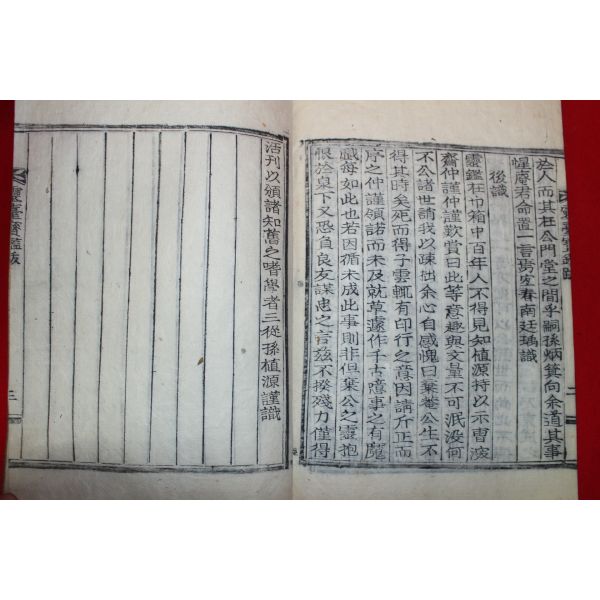 於人而其在公門堂之間乎嗣孫炳箕向余道其事
惺庵君命置一言岁安春南廷瑀識
後識
靈鑑在巾箱中百年人不得見知植源持以示曹深
齋仲謹仲謹歎賞曰此等意趣與文量不可泯没何
不公諸世請我以疎拙余心自感愧曰葉菴公生不
得其時矣死而得子雲輒有印行之意因請斤正而
序之仲謹領諾而未及就草遽作千古噫事之有魔
戱每如此也若因循未成此事則非但葉公之靈抱
恨於泉下又恐自良友謀忠之言玆不揆殘力僅得
活刊以頒諸知舊之嗜學者三從孫植源謹識
靈臺寶鑑跋
二
靈臺寶鑑跋
三